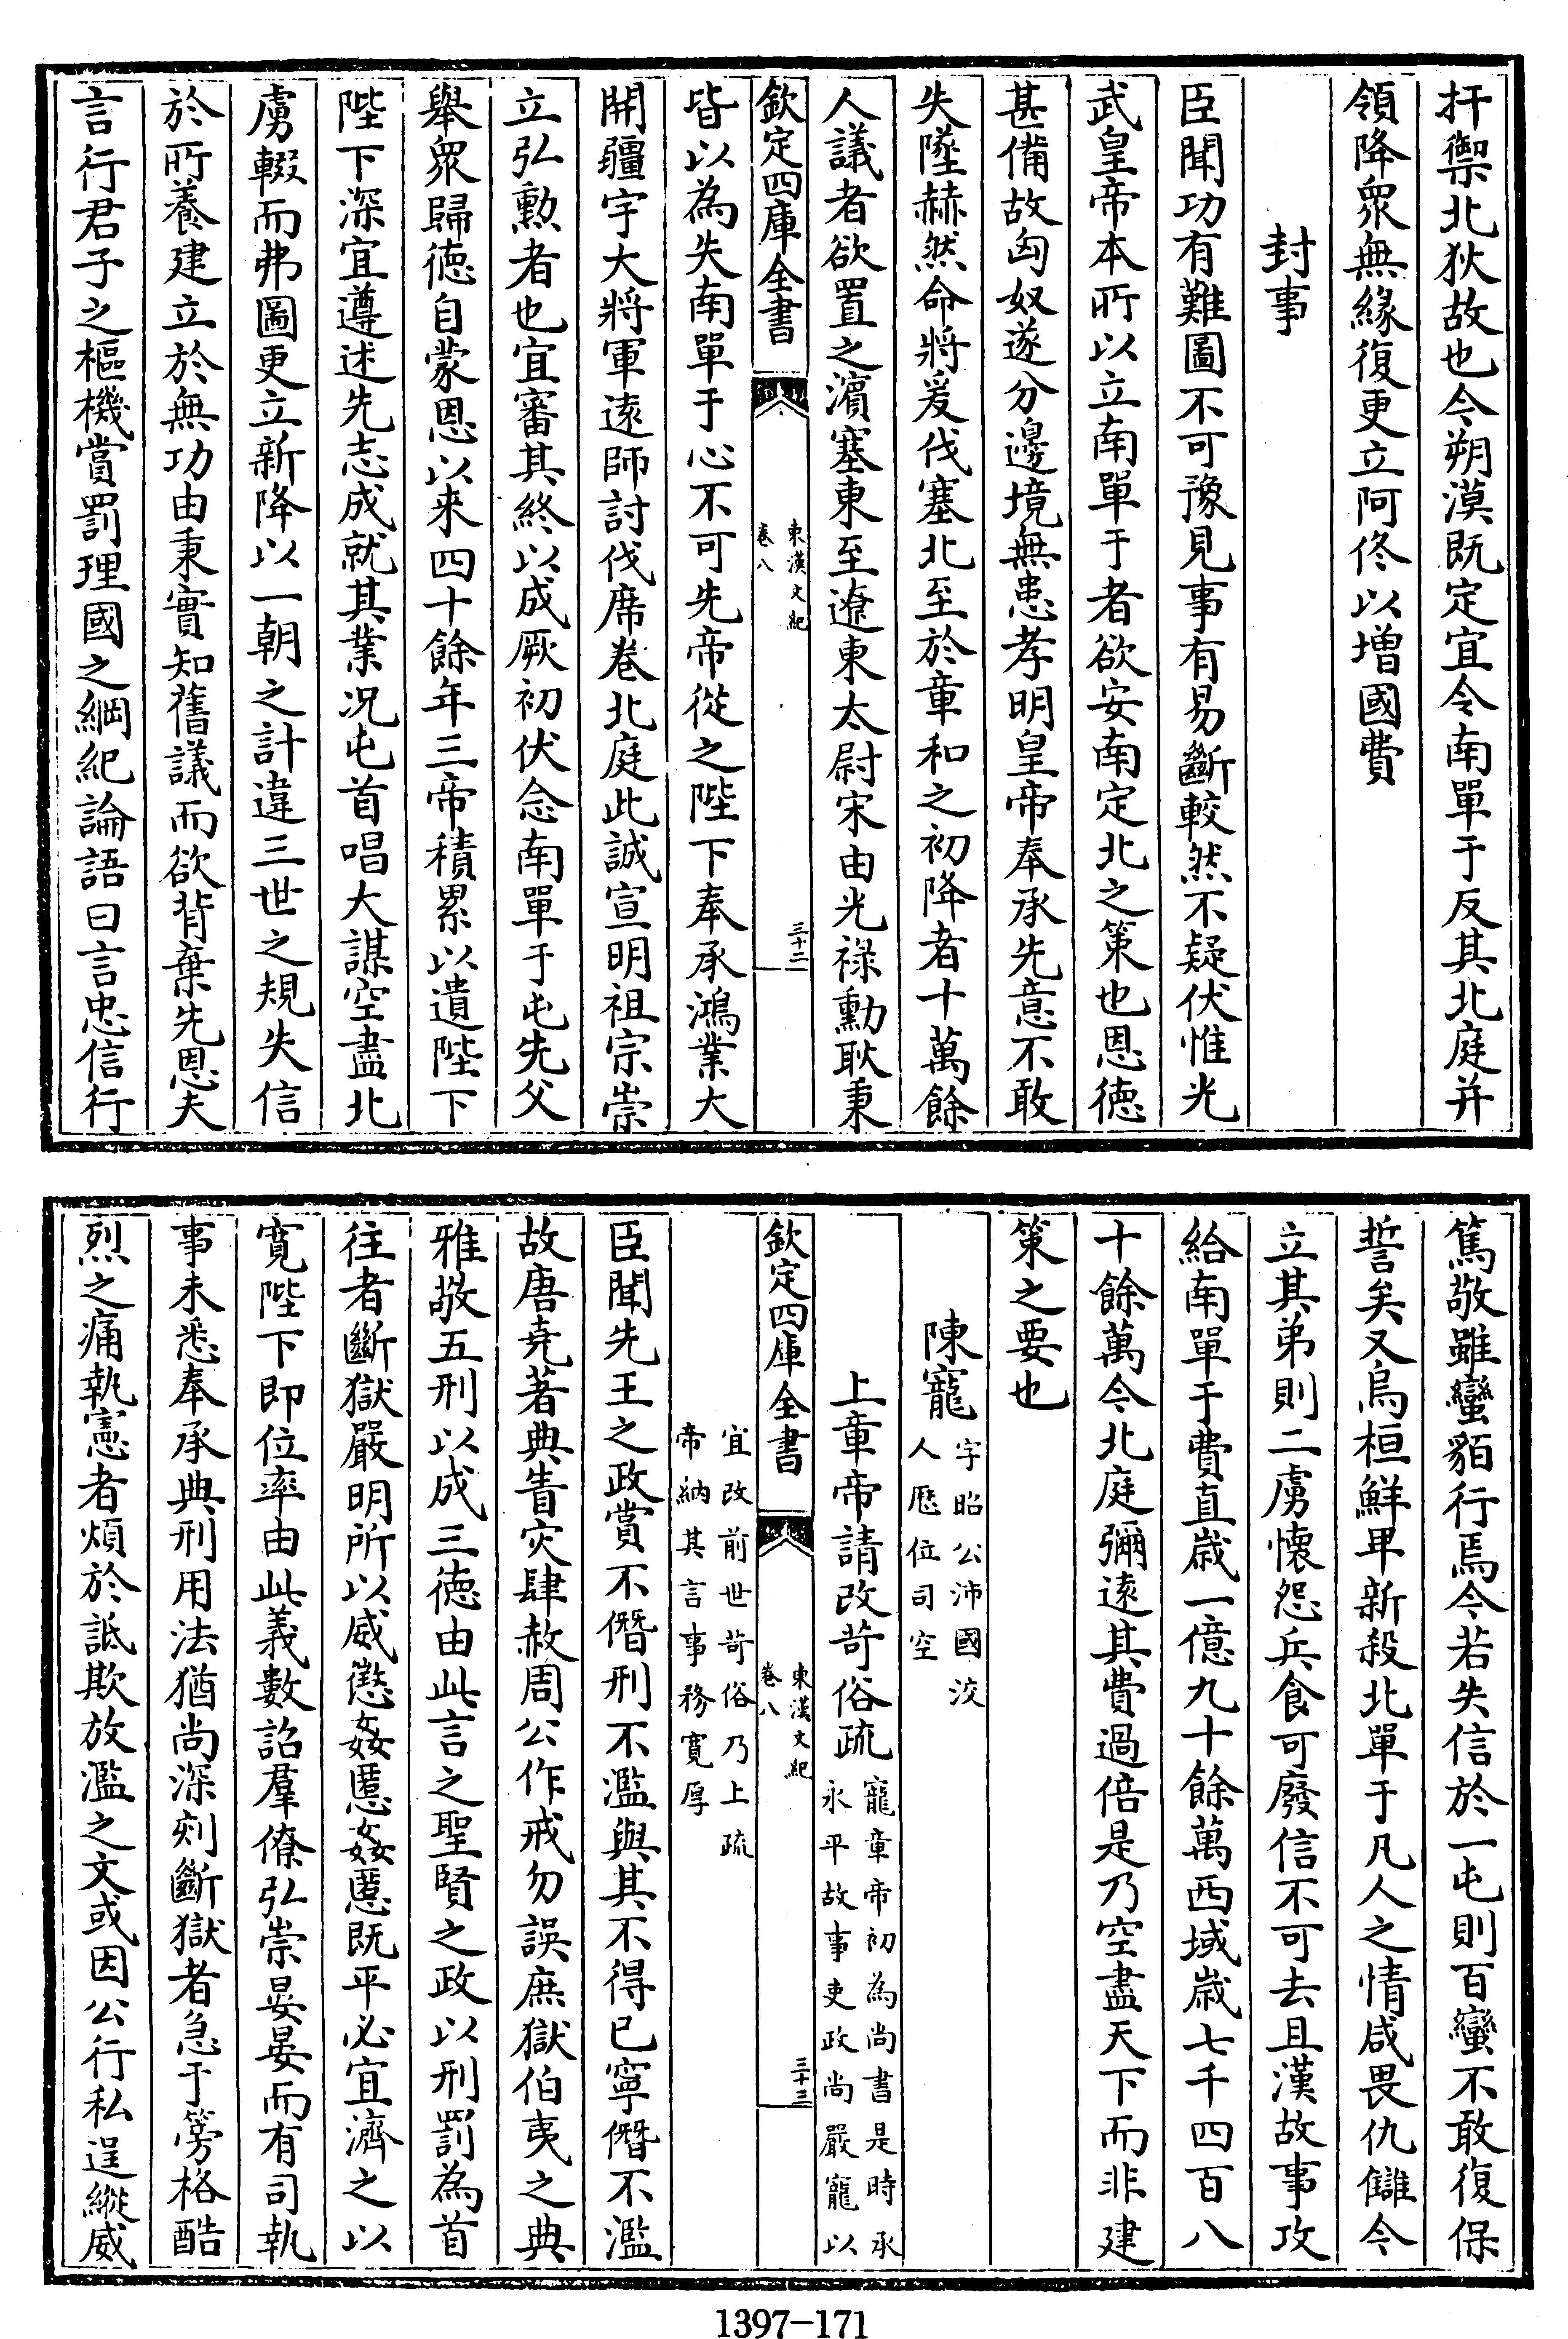 扞禦北狄故也今朔漠既定宜令南單于反其北庭并
領降衆無緣復更立阿佟以增國費
封事
臣聞功有難圖不可豫見事有易斷較然不疑伏惟光
武皇帝本所以立南單于者欲安南定北之策也恩德
甚備故匈奴遂分邊境無患孝明皇帝奉承先意不敢
失墜赫然命將爰伐塞北至於章和之初降者十萬餘
人議者欲置之濵塞東至遼東太尉宋由光祿勳耿秉
欽定四庫全書
東漢文紀
卷八
三十二
皆以為失南單于心不可先帝從之陛下奉承鴻業大
開疆宇大將軍遠師討伐席卷北庭此誠宣明祖宗崇
立弘勲者也宜審其終以成厥初伏念南單于屯先父
舉衆歸徳自蒙恩以来四十餘年三帝積累以遺陛下
陛下深宜遵述先志成就其業况屯首唱大謀空盡北
虜輟而弗圖更立新降以一朝之計違三世之規失信
於所養建立於無功由秉實知舊議而欲背棄先恩夫
言行君子之樞機賞罰理國之綱紀論語曰言忠信行
篤敬雖蠻貊行焉今若失信於一屯則百蠻不敢復保
誓矣又烏桓鮮卑新殺北單于凡人之情咸畏仇讎今
立其弟則二虜懷怨兵食可廢信不可去且漢故事攻
給南單于費直歲一億九十餘萬西域歲七千四百八
十餘萬今北庭彌遠其費過倍是乃空盡天下而非建
策之要也
陳寵
字昭公沛國洨
人歷位司空
上章帝請改苛俗疏
寵章帝初為尚書是時承
永平故事吏政尚嚴寵以
欽定四庫全書
東漢文紀
卷八
三十三
宜改前世苛俗乃上疏
帝納其言事務寛厚
臣聞先王之政賞不僭刑不濫與其不得已寧僭不濫
故唐尭著典眚灾肆赦周公作戒勿誤庶獄伯夷之典
雅敬五刑以成三徳由此言之聖賢之政以刑罰為首
往者斷獄嚴明所以威懲姦慝姦慝既平必宜濟之以
寛陛下即位率由此義數詔羣僚弘崇晏晏而有司執
事未悉奉承典刑用法猶尚深刻斷獄者急于篣格酷
烈之痛執憲者煩於詆欺放濫之文或因公行私逞縱威
1397-171